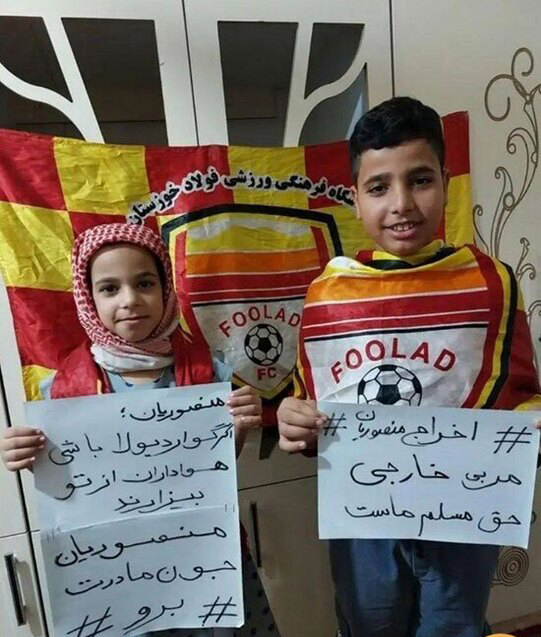 شگاه فرهنگی ورزشی فولاد خوزستان
FOOLAD
FC
FOOLAD
منصوریان؛
اگر گواردیولا باشی
هواداران از تو
بیزارند
منصوریان
جون مادرت
برو #
#
# اخراج منصوریان #
مربی خارجی
حق مسلم ماست